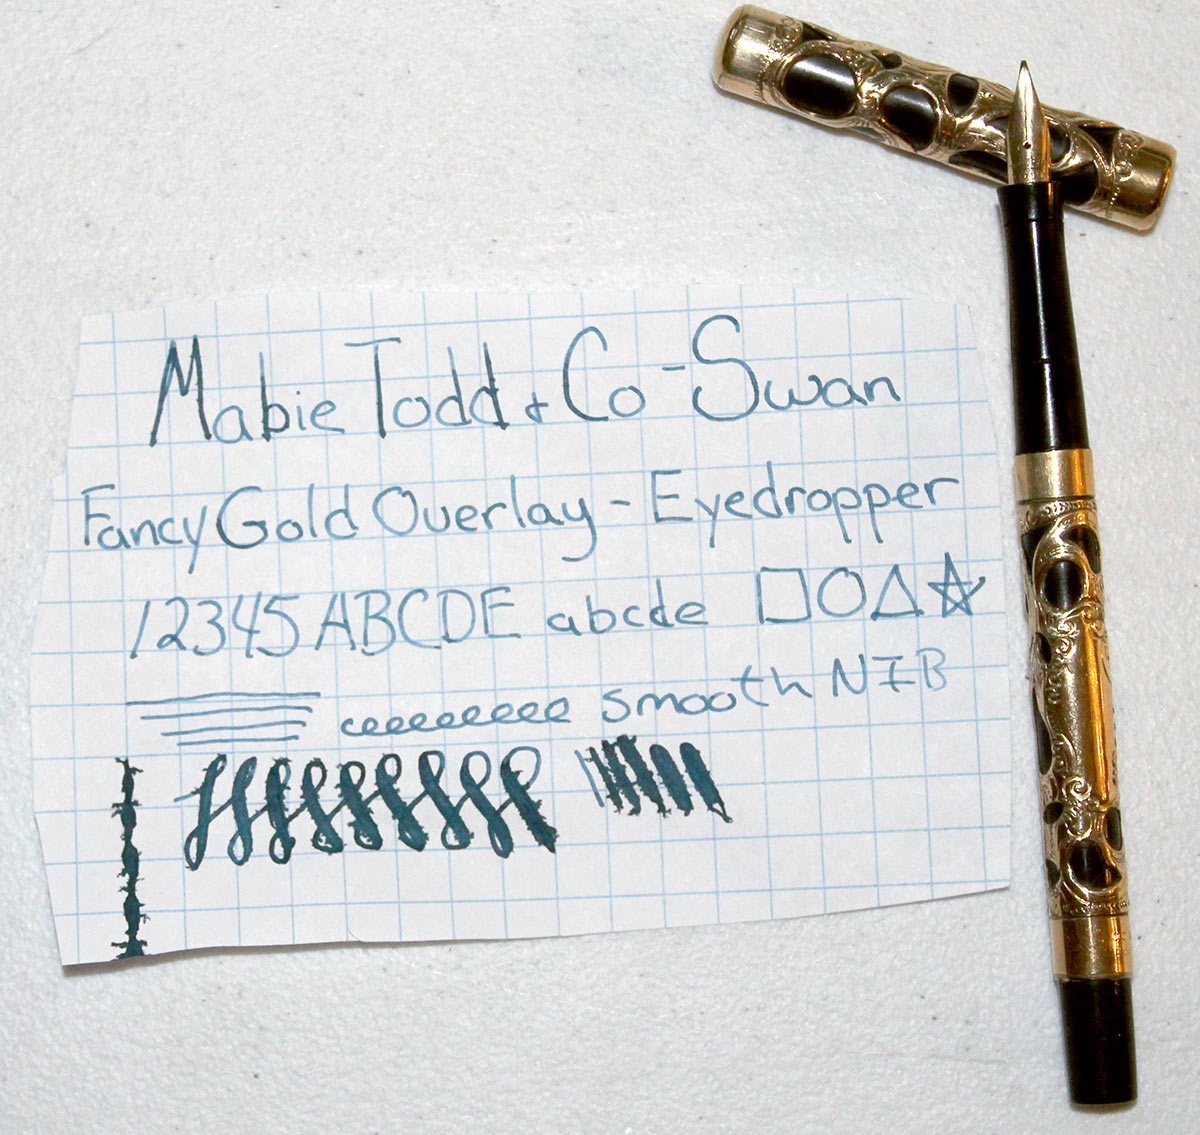 Mabie Todd & Co - Swan
Fancy Gold Overlay - Eyedropper
12345 ABCDE abcde
eeeeeeeee smooth NIB